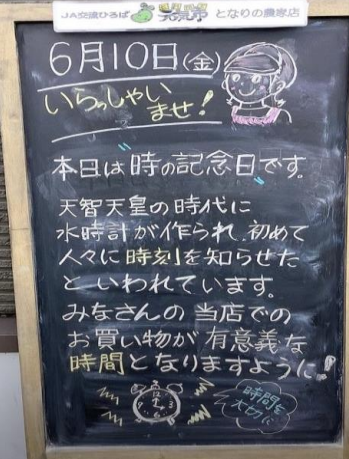 JA交流ひろば 元気市 となりの農家店
6月10日(金)
いらっしゃい
ませ!
本日は"時の記念日"です。
天智天皇の時代に
水時計が作られ、初めて
人々に時刻を知らせた
といわれています。
みなさんの当店での
お買い物が有意義な
時間となりますように!
時間を
大切に